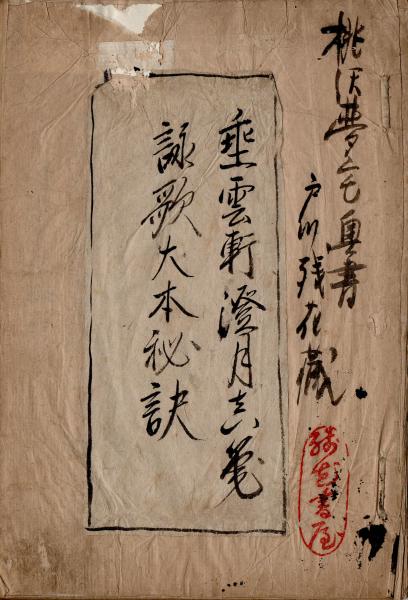 桃沢夢宅奥書
戸川残花蔵
残花書屋
垂雲軒澄月真筆
詠歌大本秘訣